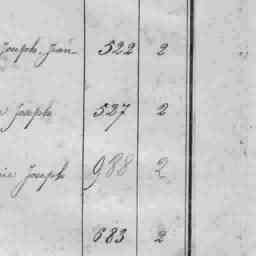 Joseph-Jean- 522 2
Joseph 527 2
Joseph 988 2
683 2